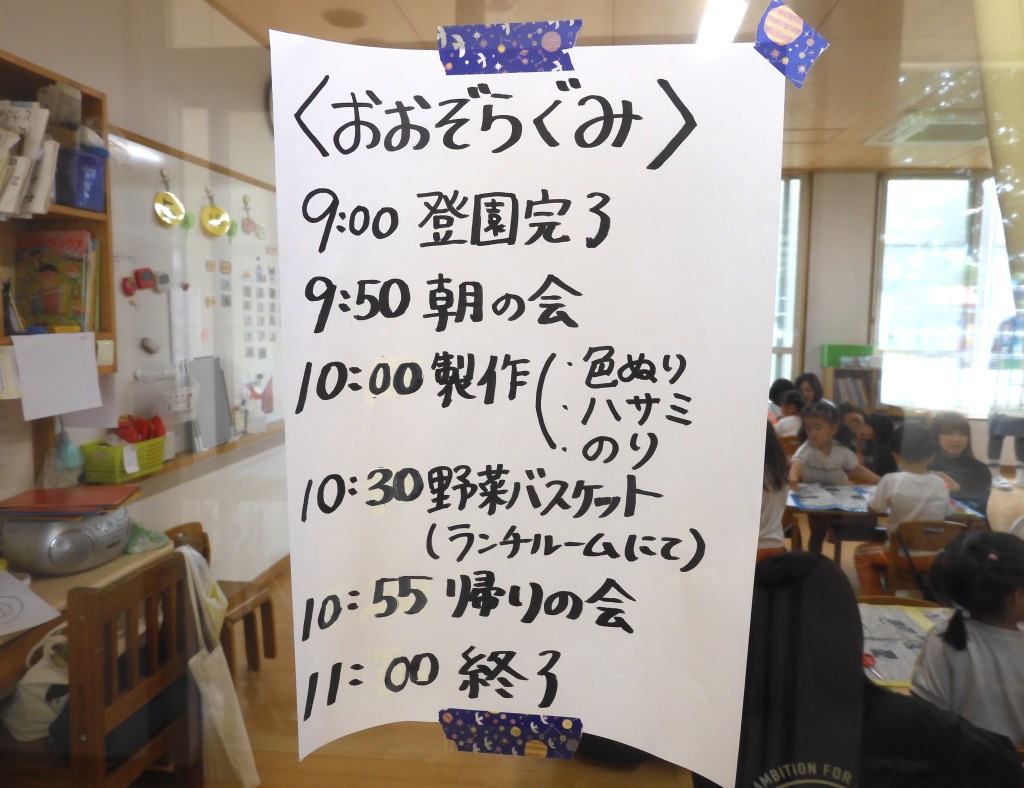 〈おおぞらぐみ〉
9:00 登園完了
9:50 朝の会
10:00 製作(・色ぬり
・ハサミ
・のり
10:30 野菜バスケット
(ランチルームにて)
10:55 帰りの会
11:00 終了
AMBITION FOR